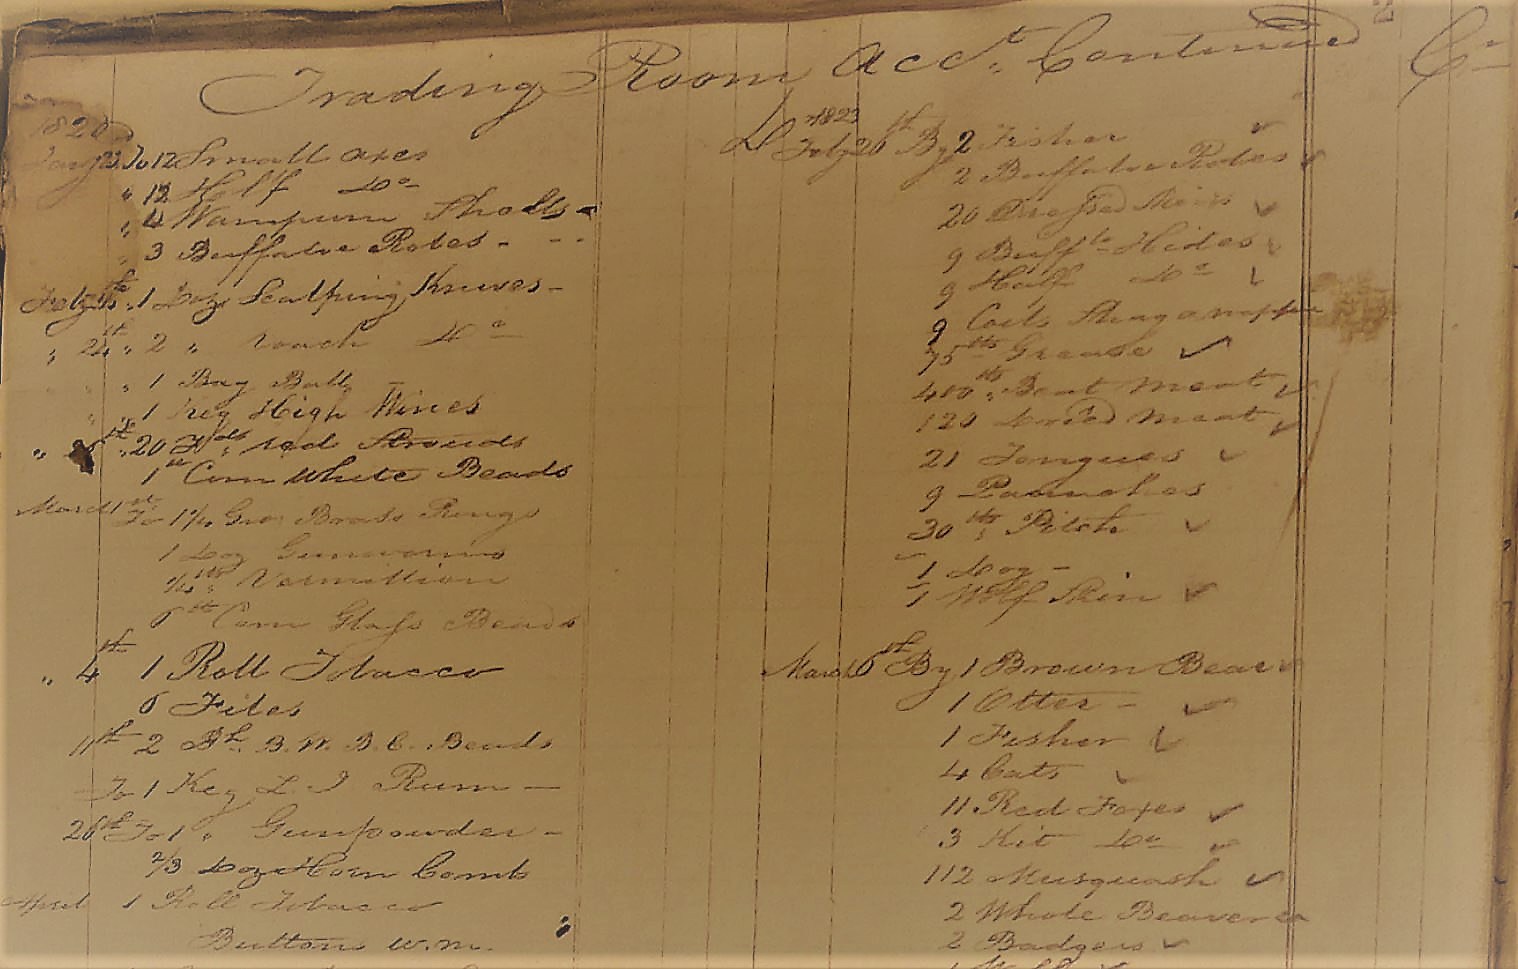 Trading Room Acct. Continued Cr
1820
Jany 23. To 12 Small axes
" 12 Half Do
" 4 Wampum Shells
" 3 Buffaloe Robes
Feby " 1 Doz Scalping Knives
" 24th " 2 " roach Do
" " 1 Bag Ball
" " 1 Keg High Wines
" " 20 red Strouds
1 lb Com White Beads
March 1st To 1 1/4 Gro Brass Rings
1 Doz Gunworms
1/4 lb Vermillion
6 lb Com Glass Beads
" 4th 1 Roll Tobacco
6 Files
11th 2 B. W. B. C. Beads
To 1 Keg L. I Rum
26th To 1 " Gunpowder
2/3 Doz Horn Combs
April 1 Roll Tobacco
Buttons w.m.
1823
Feby 26th By 2 Fisher
2 Buffaloe Robes
20 Dressed Skins
9 Buffle Hides
9 Half Do
9 Coils Shaganappe
75 lbs Grease
400 lbs " Beat Meat
120 Meat
21 Tongues
9
30 lbs Pitch
1 Dog
1 Wolf Skin
March 6th By 1 Brown Bear
1 Otter
1 Fisher
4 Cats
11 Red Foxes
3 Kit Do
112 Musquash
2 Whole Beaver
2 Badgers